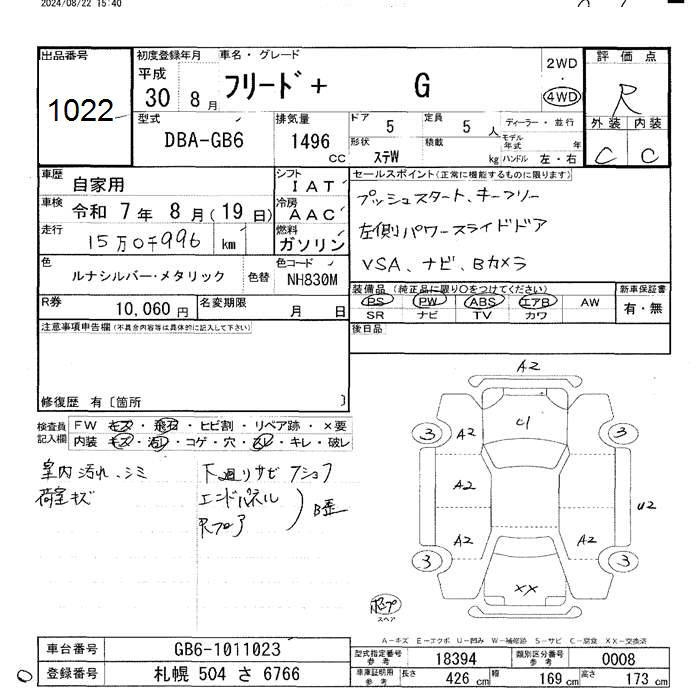 2024/08/22 15:40
出品番号 初度登録年月 車名・グレード 2WD ・ 4WD 評価点
1022 平成 30 8月 フリード+ G R
型式 排気量 ドア 5 定員 5人 ディーラー・並行 外装 内装
DBA-GB6 1496 CC 形状 ステW 積載 kg モデル年式 年 ハンドル 左・右 C C
車歴 自家用 シフト IAT セールスポイント(正常に機能するものに限ります)
車検 令和 7年 8月(19日) 冷房 AAC プッシュスタート、キーフリー
走行 15万0千996 km 燃料 ガソリン 左側パワースライドドア
色 ルナシルバー・メタリック 色替 色コード NH830M VSA、ナビ、Bカメラ
R券 10,060円 名変期限 月 日 装備品(純正品に限り○をつけてください) 新車保証書
PS PW ABS エアB AW 有・無
SR ナビ TV カワ
注意事項申告欄(不具合内容等は具体的に記入して下さい) 後日品
修復歴 有〔箇所 〕
検査員記入欄 FW キズ・飛石・ヒビ割・リペア跡・×要
内装 キズ・汚レ・コゲ・穴・スレ・キレ・破レ
室内汚れ、シミ 下廻りサビ
荷室キズ エンドパネル
Rフロア B歪
A2
3 A2 C1 3
A2 U2
A2 A2
3 XX 3
スペア
A-キズ E-エクボ U-凹み W-補修跡 S-サビ C-腐食 XX-交換済
車台番号 GB6-1011023 型式指定番号 参考 18394 類別区分番号 参考 0008
登録番号 札幌 504 さ 6766 車庫証明用 参考 長さ 426cm 幅 169cm 高さ 173cm